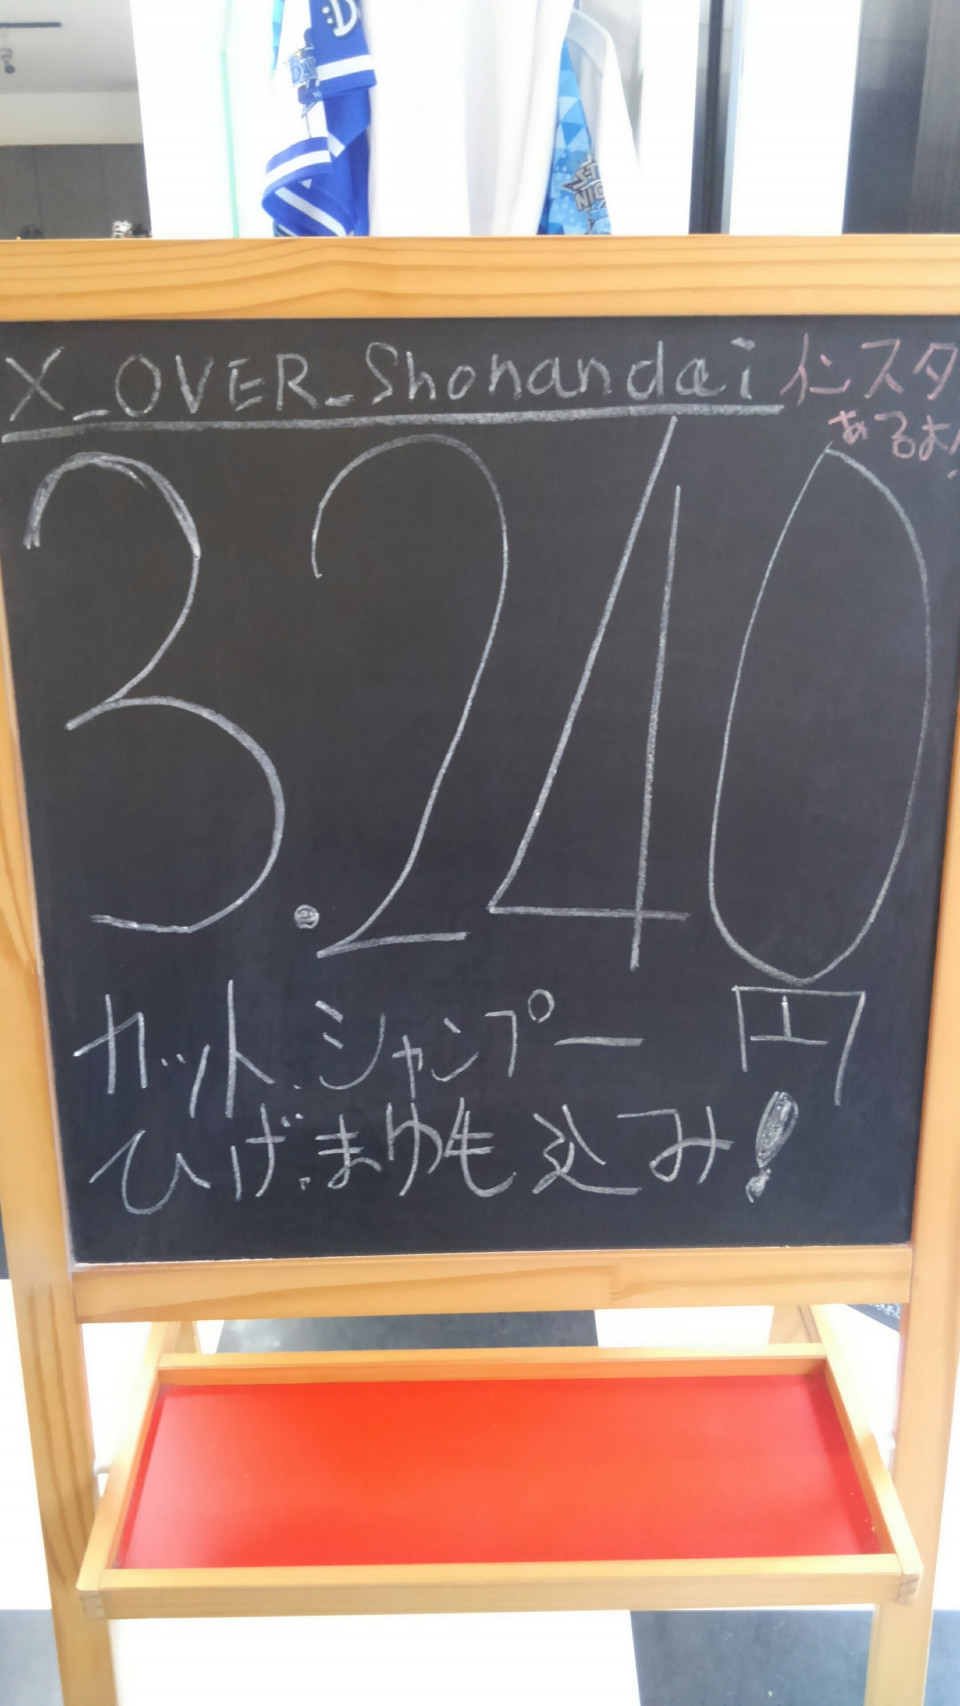 X_OVER_Shonandai インスタ
あるよ!
3.240
円
カット.シャンプー
ひげ.まゆも込み!